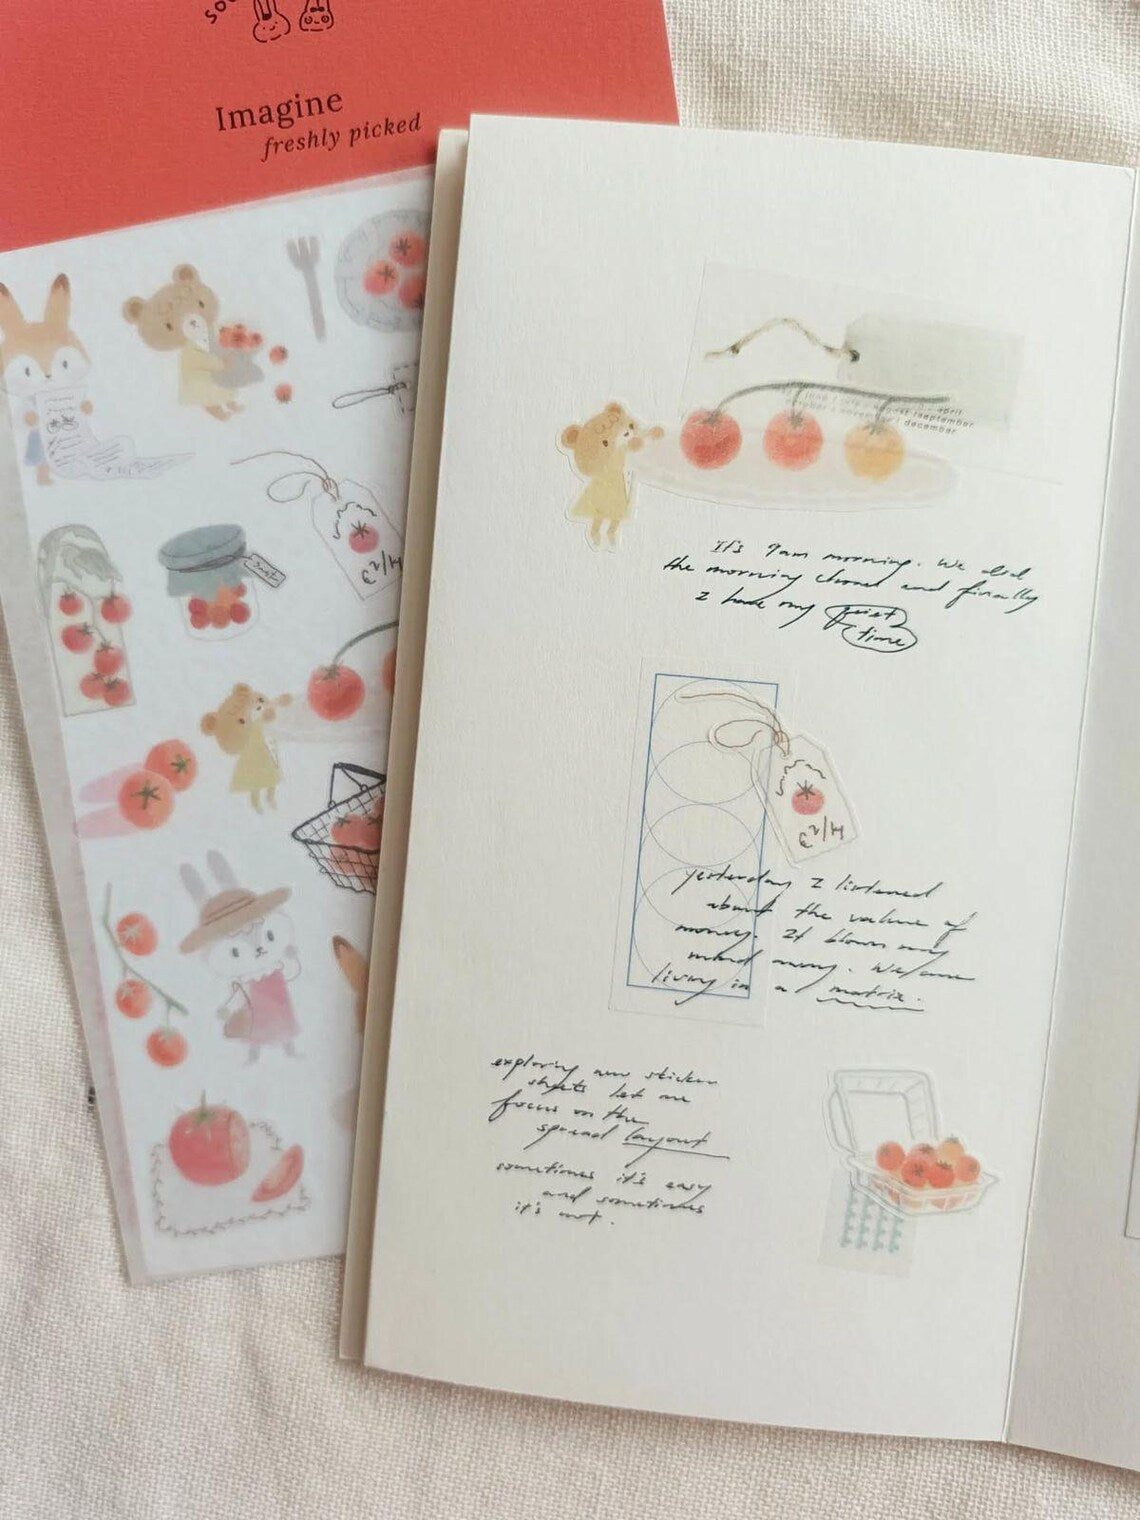 Imagine
freshly picked
april
september
december
It's 9am morning. We did
the morning chores and finally
I have my quiet
time
yesterday I listened
about the value of
money. It blows my
mind away. We are
living in a matrix.
exploring new sticker
sheets let me
focus on the
spread layout
sometimes it's easy
and sometimes
it's not.